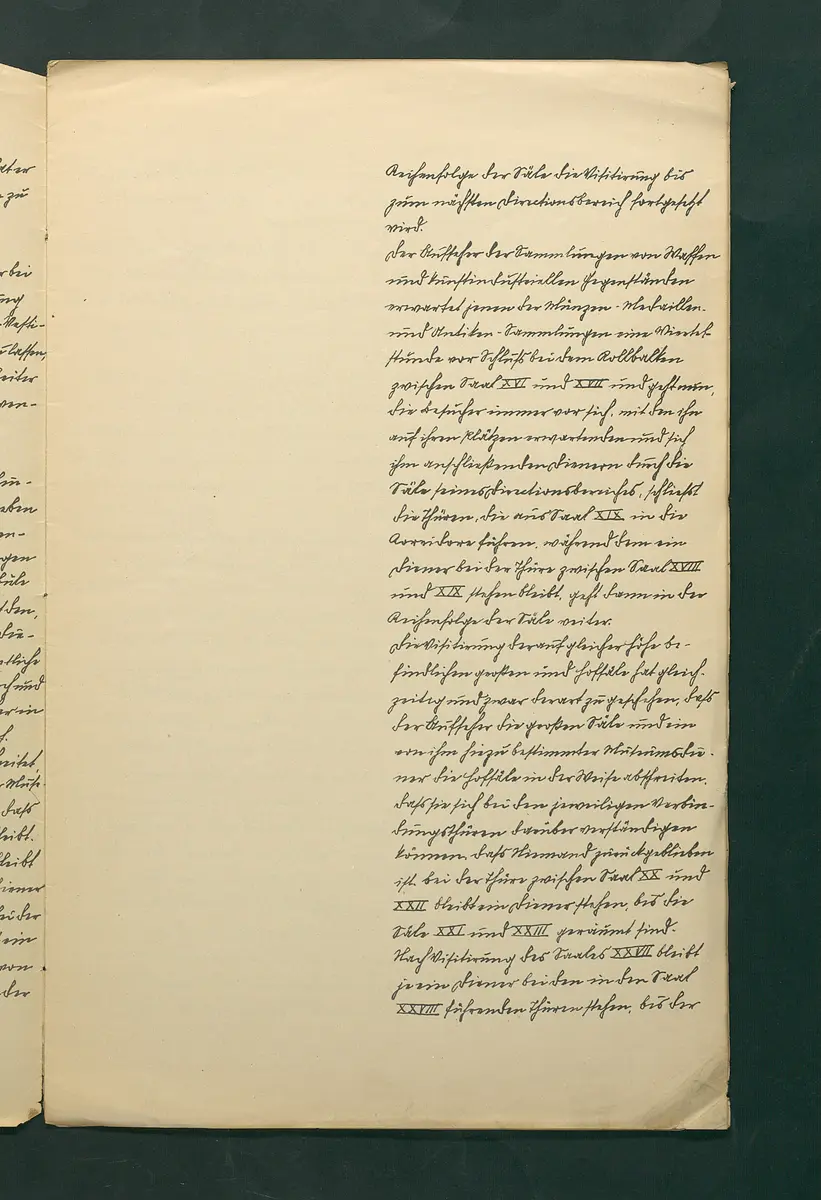 Reihenfolge der Säle die Visitirung bis
zum nächsten Directionsbereich fortgesetzt
wird.
Der Aufseher der Sammlungen von Waffen
und kunstindustriellen Gegenständen
erwartet jenen der Münzen- Medaillen-
und Antiken-Sammlungen eine Viertel-
stunde vor Schluß bei dem Rollbalken
zwischen Saal XVI und XVII und geht nun,
die Besucher immer vor sich, mit den ihn
auf ihren Plätzen erwartenden und sich
ihm anschließenden Dienern durch die
Säle seines Directionsbereiches, schließt
die Thüren, die aus Saal XIX in die
Korridore führen, während dem ein
Diener bei der Thüre zwischen Saal XVIII
und XIX stehen bleibt, geht dann in der
Reihenfolge der Säle weiter.
Die Visitirung der auf gleicher Höhe be-
findlichen großen und Hofsäle hat gleich-
zeitig und zwar derart zu geschehen, dass
der Aufseher die großen Säle und ein
von ihm hiezu bestimmter Museumsdie-
ner die Hofsäle in der Weise abschreiten,
dass sie sich bei den jeweiligen Verbin-
dungsthüren darüber verständigen
können, dass Niemand zurückgeblieben
ist. Bei der Thüre zwischen Saal XX und
XXII bleibt ein Diener stehen, bis die
Säle XXI und XXIII geräumt sind.
Nach Visitirung des Saales XXVII bleibt
je ein Diener bei den in den Saal
XXVIII führenden Thüren stehen, bis der